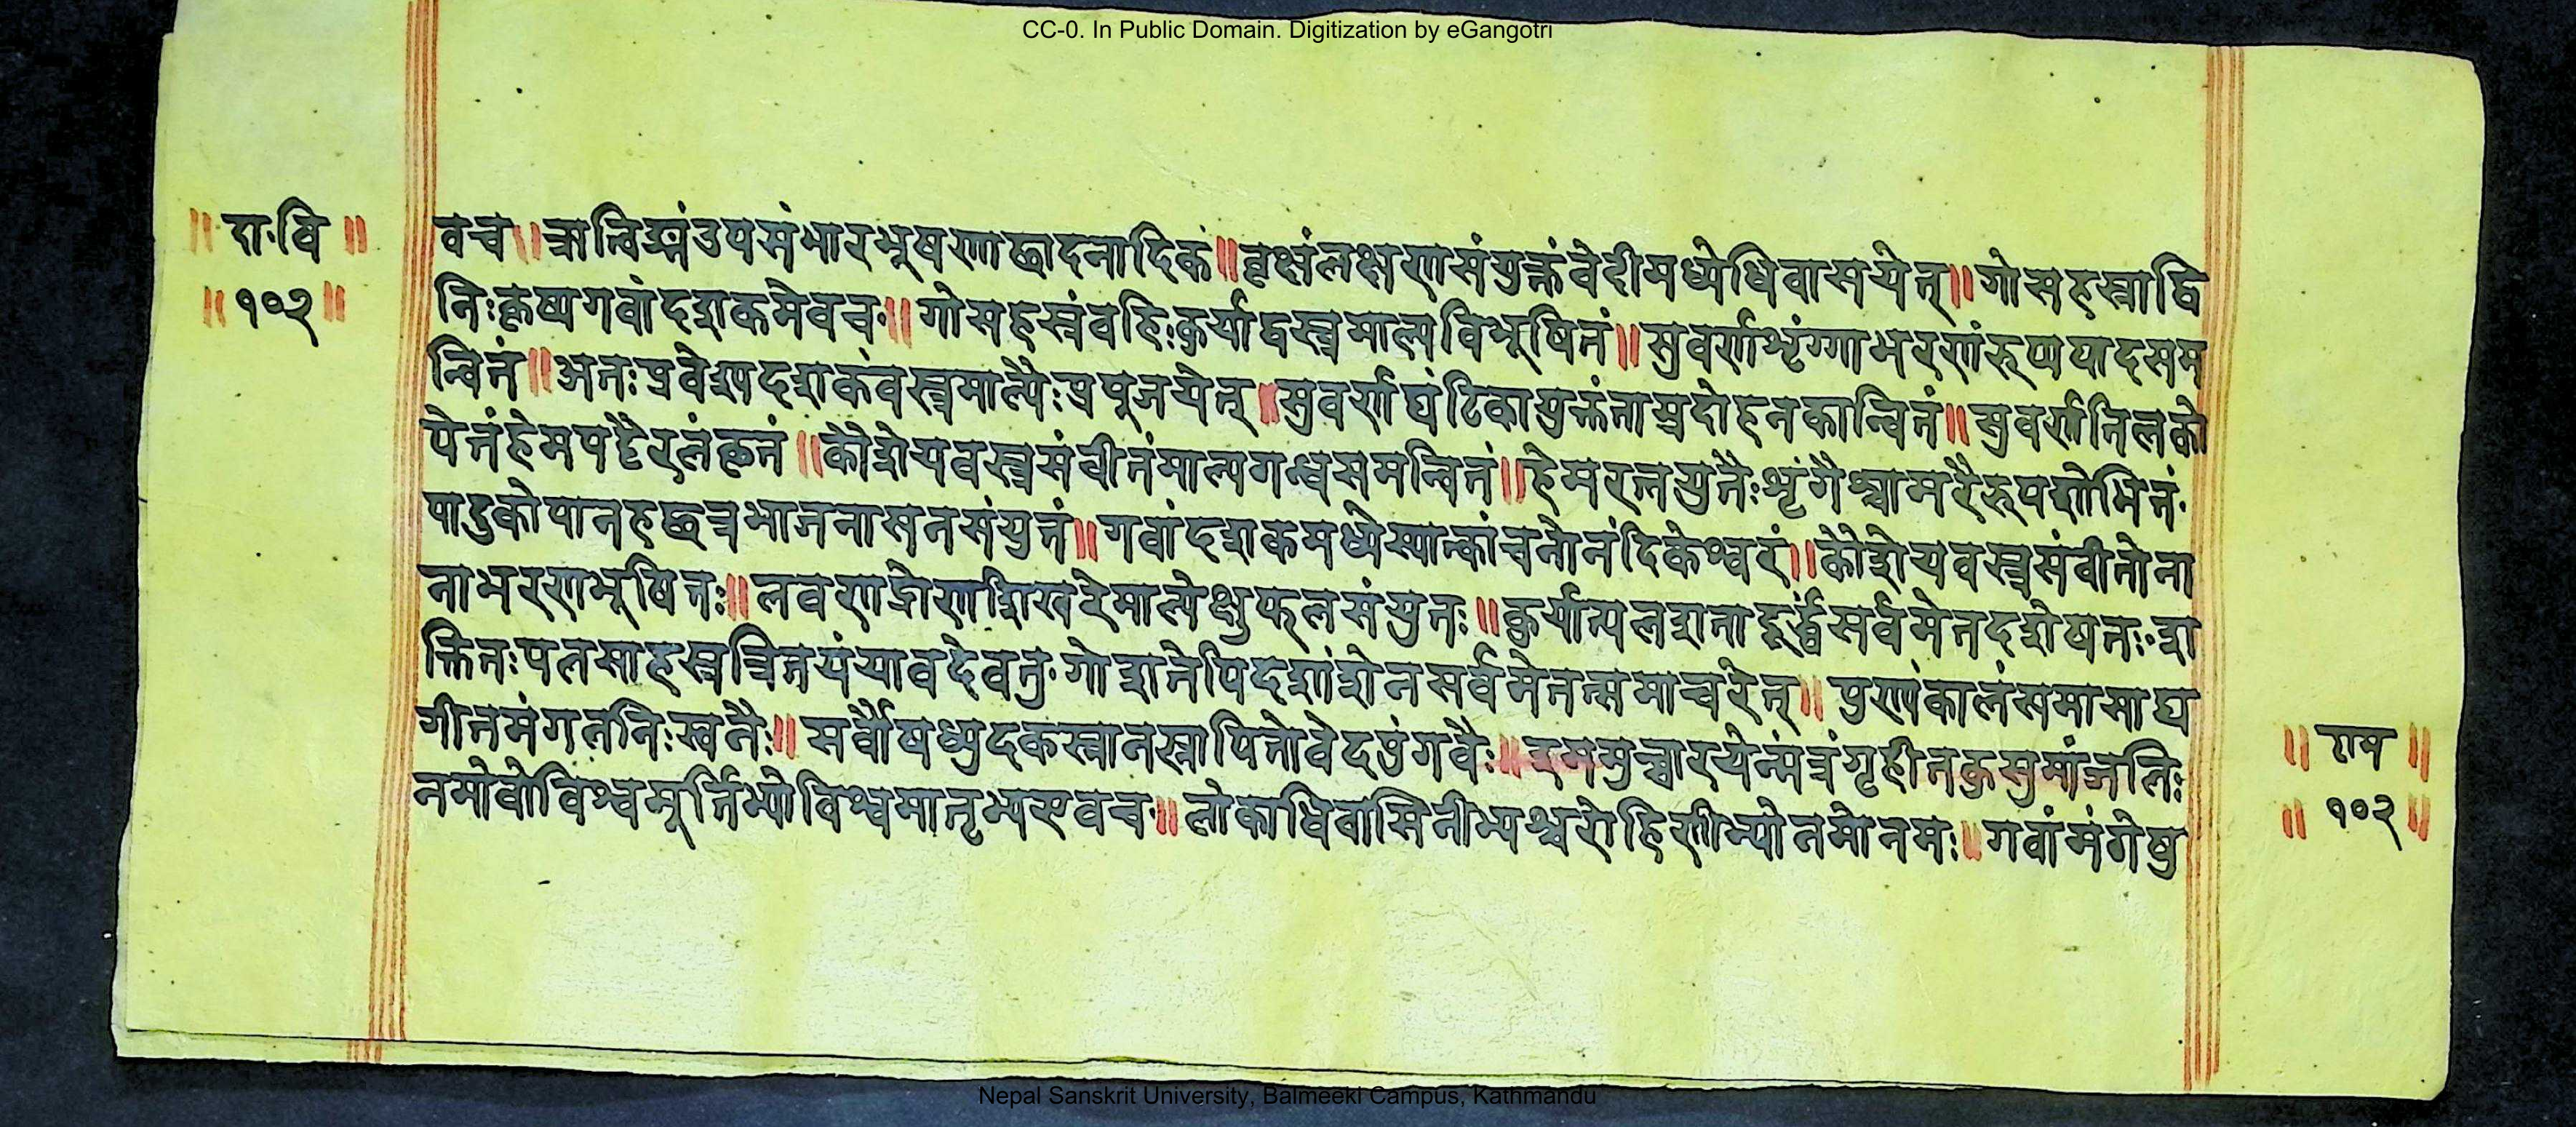 CC-0. In Public Domain. Digitization by eGangotri
॥ दा·वि ॥
॥ १०२ ॥
वच ॥ ऋत्विङ्मंडपसंभारभूषणाछादनादिकं ॥ वृक्षंलक्षणसंयुक्तंवेदीमध्येधिवासयेत् ॥ गोसहस्राद्वि
निःकृष्यगवांदशकमेवच ॥ गोसहस्रंवहिःकुर्याद्वस्त्रमाल्यविभूषितं ॥ सुवर्णशृंग्गाभरणंरूप्यपादसम
न्वितं ॥ अतःप्रवेश्यदशकंवस्त्रमाल्यैःप्रपूजयेत् ॥ सुवर्णघंटिकायुक्तंताम्रदोहनकान्वितं ॥ सुवर्णतिलको
पेतंहेमपट्टैरलंकृतं ॥ कौशेयवस्त्रसंवीतंमाल्यगन्धसमन्वितं ॥ हेमरत्नयुतैःशृंगैश्चामरैरूपशोभितं·
पादुकोपानहछत्रभाजनासनसंयुतं ॥ गवांदशकमध्येस्यात्कांचनोनंदिकेश्वरं ॥ कौशेयवस्त्रसंवीतोना
नाभरणभूषितः ॥ लवणद्रोणशिखरेमाल्येक्षुफलसंयुतः ॥ कुर्यात्पलशतादूर्द्ध्वंसर्वमेतदशेषतः·श
क्तितःपलसाहस्रत्रितयंयावदेवतु· गोशतेपिदशांशेनसर्वमेतत्समाचरेत् ॥ पुण्यंकालंसमासाद्य
गीतमंगलनिःस्वनैः ॥ सर्वौषध्युदकस्नानस्नापितोवेदपुंगवैः ॥ इममुच्चारयेन्मंत्रंगृहीतकुसुमांजलिः
नमोवोविश्वमूर्त्तिभ्योविश्वमातृभ्यएवच ॥ लोकाधिवासिनीभ्यश्चरोहिणीभ्योनमोनमः ॥ गवांमंगेषु
॥ राम ॥
॥ १०२ ॥
Nepal Sanskrit University, Balmeeki Campus, Kathmandu